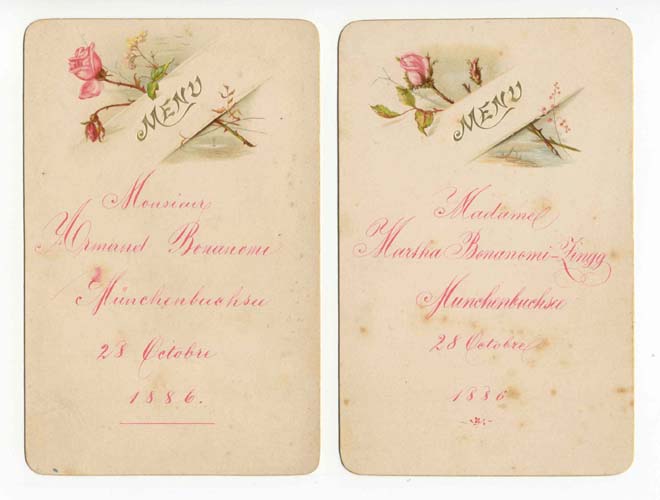 MENU
Monsieur
Armand Bonanomi
Münchenbuchsee
28 Octobre
1886.
MENU
Madame
Martha Bonanomi-Zingg
Munchenbuchsee
28 Octobre
1886